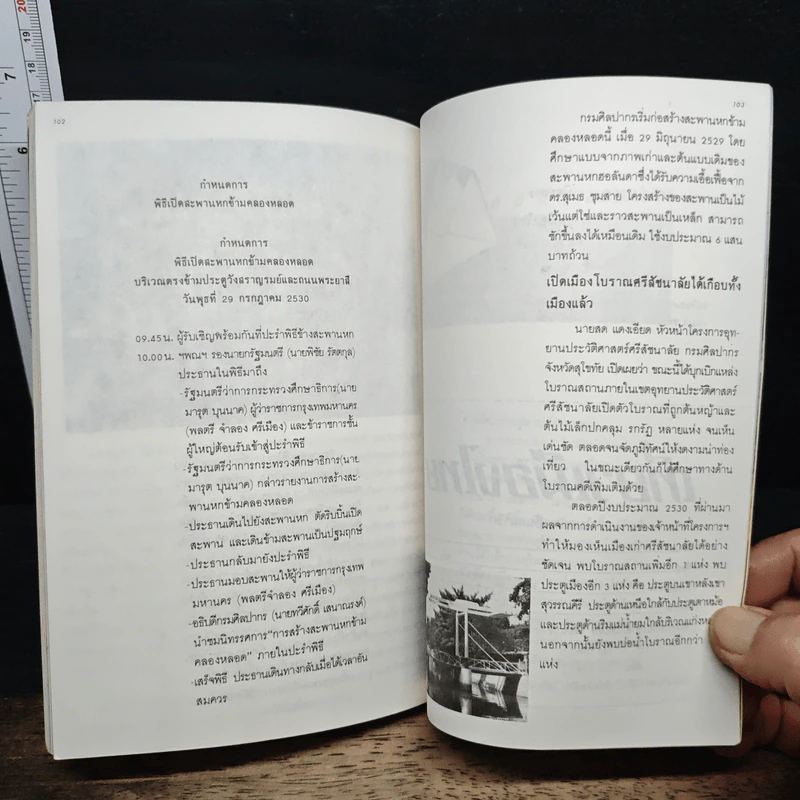 102
กำหนดการ
พิธีเปิดสะพานหกข้ามคลองหลอด
กำหนดการ
พิธีเปิดสะพานหกข้ามคลองหลอด
บริเวณตรงข้ามประตูวังสราญรมย์และถนนพระยาสี
วันพุธที่ 29 กรกฎาคม 2530
09.45น. ผู้รับเชิญพร้อมกันที่ปะรำพิธีข้างสะพานหก
10.00น. ฯพณฯ รองนายกรัฐมนตรี (นายพิชัย รัตตกุล)
ประธานในพิธีมาถึง
-รัฐมนตรีว่าการกระทรวงศึกษาธิการ(นาย
มารุต บุนนาค) ผู้ว่าราชการกรุงเทพมหานคร
(พลตรี จำลอง ศรีเมือง) และข้าราชการชั้น
ผู้ใหญ่ต้อนรับเข้าสู่ปะรำพิธี
-รัฐมนตรีว่าการกระทรวงศึกษาธิการ(นาย
มารุต บุนนาค) กล่าวรายงานการสร้างสะ-
พานหกข้ามคลองหลอด
-ประธานเดินไปยังสะพานหก ตัดริบบิ้นเปิด
สะพาน และเดินข้ามสะพานเป็นปฐมฤกษ์
-ประธานกลับมายังปะรำพิธี
-ประธานมอบสะพานให้ผู้ว่าราชการกรุงเทพ
มหานคร (พลตรีจำลอง ศรีเมือง)
-อธิบดีกรมศิลปากร (นายทวีศักดิ์ เสนาณรงค์)
นำชมนิทรรศการ"การสร้างสะพานหกข้าม
คลองหลอด" ภายในปะรำพิธี
-เสร็จพิธี ประธานเดินทางกลับเมื่อได้เวลาอัน
สมควร
103
กรมศิลปากรเริ่มก่อสร้างสะพานหกข้าม
คลองหลอดนี้ เมื่อ 29 มิถุนายน 2529 โดย
ศึกษาแบบจากภาพเก่าและต้นแบบเดิมของ
สะพานหกฮอลันดาซึ่งได้รับความเอื้อเฟื้อจาก
ดร.สุเมธ ชุมสาย โครงสร้างของสะพานเป็นไม้
เว้นแต่โซ่และราวสะพานเป็นเหล็ก สามารถ
ชักขึ้นลงได้เหมือนเดิม ใช้งบประมาณ 6 แสน
บาทถ้วน
เปิดเมืองโบราณศรีสัชนาลัยได้เกือบทั้ง
เมืองแล้ว
นายสด แดงเอียด หัวหน้าโครงการอุท-
ยานประวัติศาสตร์ศรีสัชนาลัย กรมศิลปากร
จังหวัดสุโขทัย เปิดเผยว่า ขณะนี้ได้บุกเบิกแหล่ง
โบราณสถานภายในเขตอุทยานประวัติศาสตร์
ศรีสัชนาลัยเปิดตัวโบราณที่ถูกต้นหญ้าและ
ต้นไม้เล็กปกคลุม รกรัฏ หลายแห่ง จนเห็น
เด่นชัด ตลอดจนจัดภูมิทัศน์ให้งดงามน่าท่อง
เที่ยว ในขณะเดียวกันก็ได้ศึกษาทางด้าน
โบราณคดีเพิ่มเติมด้วย
ตลอดปีงบประมาณ 2530 ที่ผ่านมา
ผลจากการดำเนินงานของเจ้าหน้าที่โครงการฯ
ทำให้มองเห็นเมืองเก่าศรีสัชนาลัยได้อย่าง
ชัดเจน พบโบราณสถานเพิ่มอีก 1 แห่ง พบ
ประตูเมืองอีก 3 แห่ง คือ ประตูบนเขาหลังเขา
สุวรรณคีรี ประตูด้านเหนือใกล้กับประตูเตาหม้อ
และประตูด้านริมแม่น้ำยมใกล้บริเวณแก่งห
นอกจากนั้นยังพบบ่อน้ำโบราณอีกกว่า
แห่ง
7
6
20
19
18
17